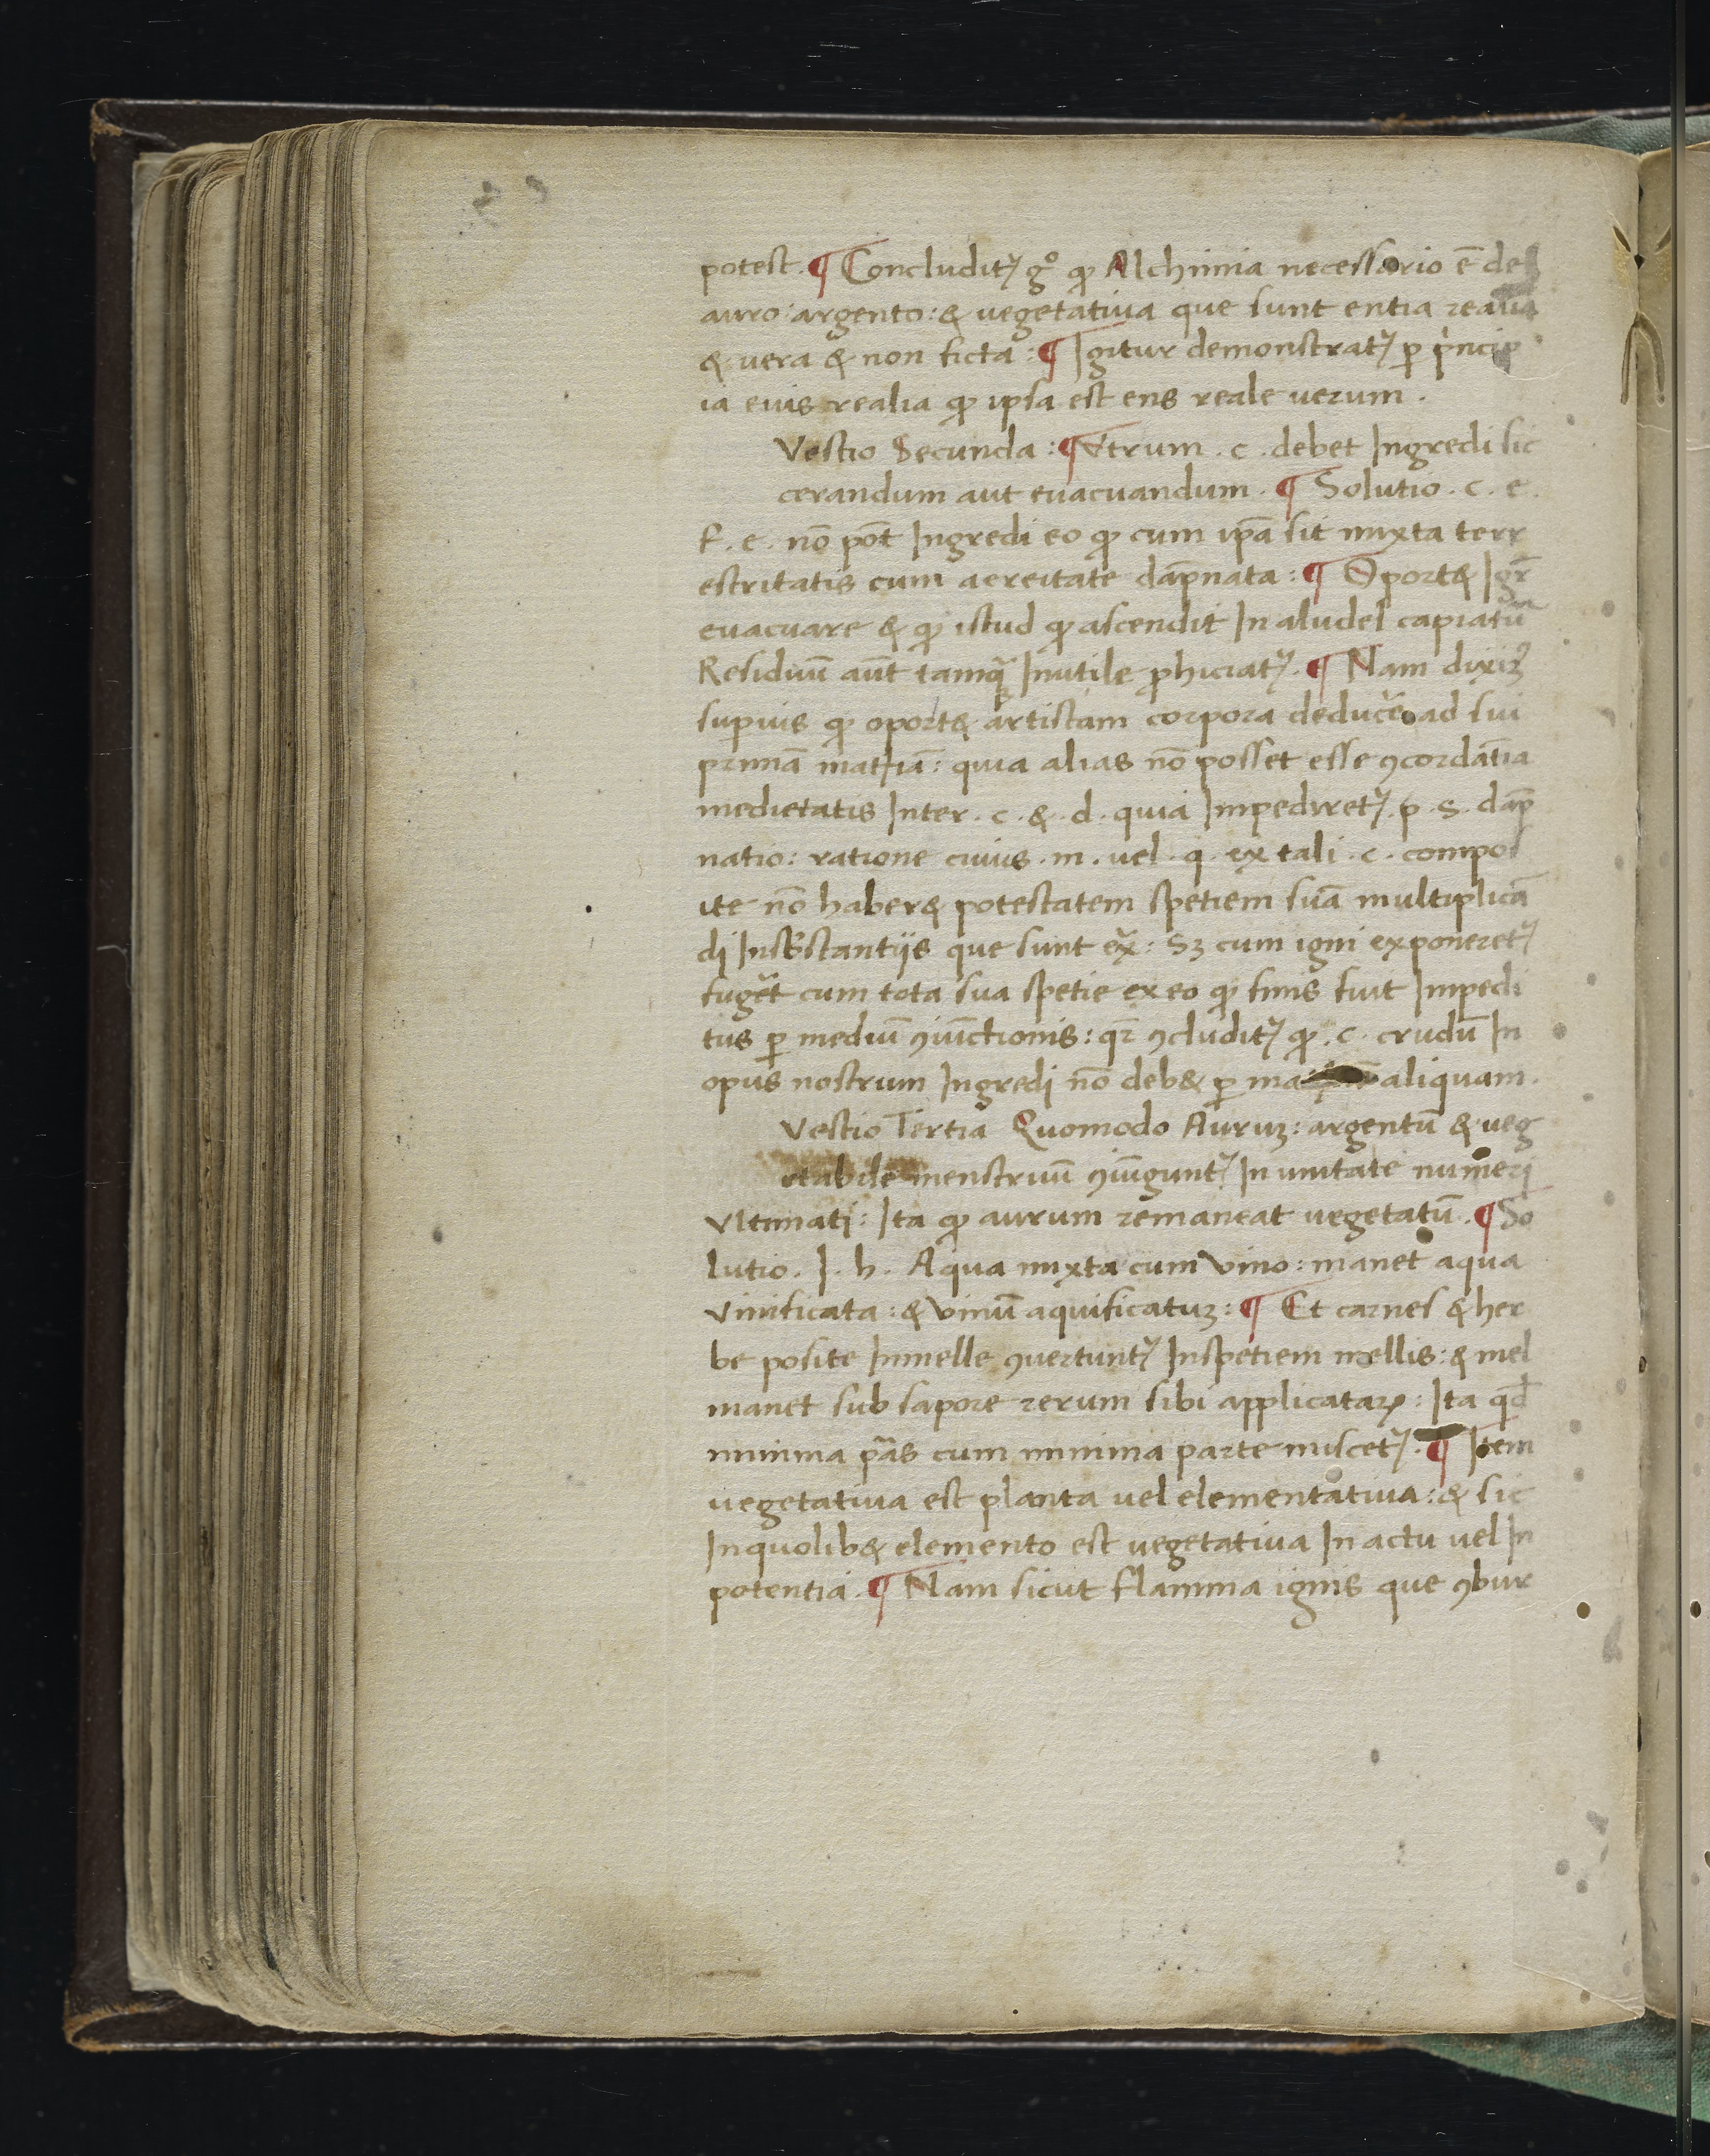 potest. ¶ Concluditꝰ gº ꝙ Alchimia necessario ē de
auro: argento: & vegetativa que sunt entia realia
& vera & non ficta: ¶ Igitur demonstratꝰ ꝑ princip
ia euis realia ꝙ ipsa est ens reale uerum.
Vestio Secunda: ¶ Vtrum. c. debet Ingredi sic
cerandum aut euacuandum. ¶ Solutio. c. e.
f. e. nō pōt Ingredi eo ꝙ cum ip̄a sit mixta terr
estritatis cum aereitate dāpnata: ¶ Oport& Igr̄
euacuare & ꝙ istud ꝙ ascendit In aludel capiatur̄
Residuū aūt tamꝗ Inutile ꝓhiciatꝰ. ¶ Nam dixiꝫ
supius ꝙ oport& artistam corpora deducē ad sui
primā mat̄iā: quia alias nō posset esse ꝯcordātia
medietatis Inter. c. &. d. quia Impediretꝰ. p. s. dāp
natio: ratione cuius. m. uel. q. ex tali. c. compos
ite nō haber& potestatem spetiem suā multiplicā
di que sunt ex̄: Sꝫ cum igni exponeretꝰ
fugēt cum tota sua spetie ex eo ꝙ finis fuit Impedi
tus ꝑ mediū ꝯiūctionis: qr̄ ꝯcluditꝰ ꝙ. c. crudū In
opus nostrum Ingredi nō deb& ꝑ aliquam.
Vestio Tertia Quomodo Auruꝫ: argentū & ueg
etabile menstruū ꝯiūguntꝰ In unitate numeri
Vltimati: Ita ꝙ aurum remaneat uegetatū. ¶ So
lutio. I. h. Aqua mixta cum Vino: manet aqua
Vinificata: & Vinū aquificatuꝫ: ¶ Et carnes & her
be posite Inmelle ꝯuertuntꝰ Inspetiem mellis: & mel
manet sub sapore rerum sibi applicataꝝ: Ita qd̄
minima pās cum minima parte miscetꝰ. ¶ Item
uegetatiua est planta uel elementatiua: & sic
Inquolib& elemento est uegetatiua In actu uel In
potentia. ¶ Nam sicut flamma ignis que ꝯbur